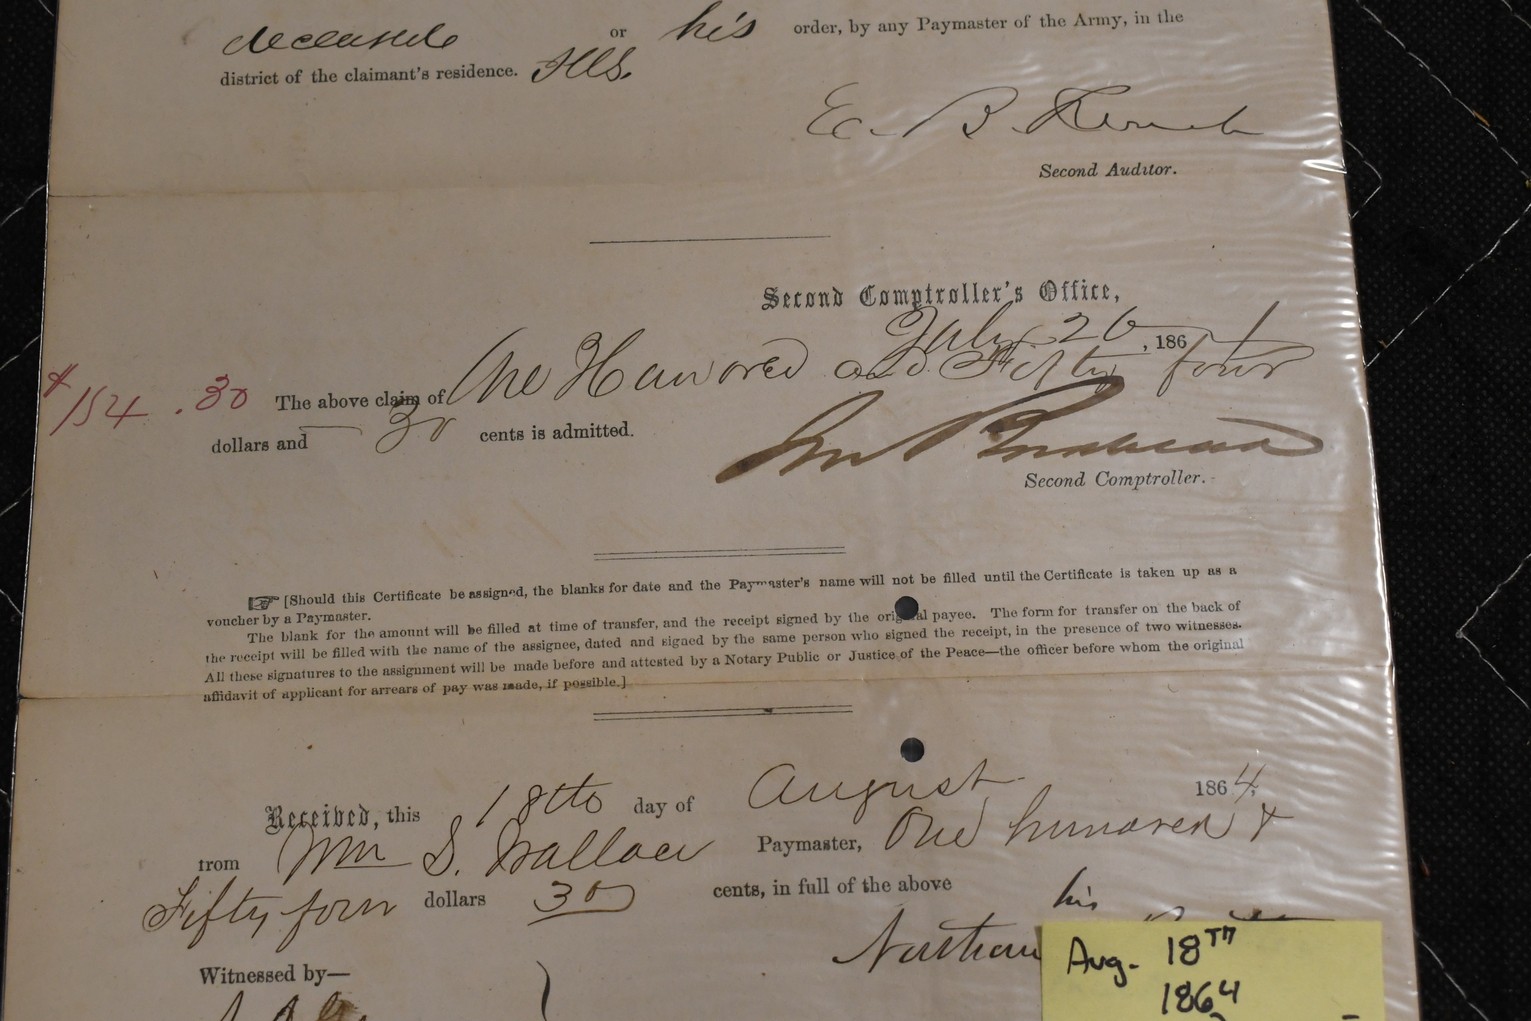 deceased or his order, by any Paymaster of the Army, in the
district of the claimant's residence. Ills.
E. B. French
Second Auditor.
Second Comptroller's Office,
July 26, 1864
$154.30 The above claim of One Hundred and Fifty four
dollars and 30 cents is admitted.
Second Comptroller.
[Should this Certificate be assigned, the blanks for date and the Paymaster's name will not be filled until the Certificate is taken up as a
voucher by a Paymaster.
The blank for the amount will be filled at time of transfer, and the receipt signed by the original payee. The form for transfer on the back of
the receipt will be filled with the name of the assignee, dated and signed by the same person who signed the receipt, in the presence of two witnesses.
All these signatures to the assignment will be made before and attested by a Notary Public or Justice of the Peace—the officer before whom the original
affidavit of applicant for arrears of pay was made, if possible.]
Received, this 18th day of August 1864,
from Wm S. Wallace Paymaster, One hundred &
Fifty four dollars 30 cents, in full of the above
his
Witnessed by—
Aug. 18TH
1864